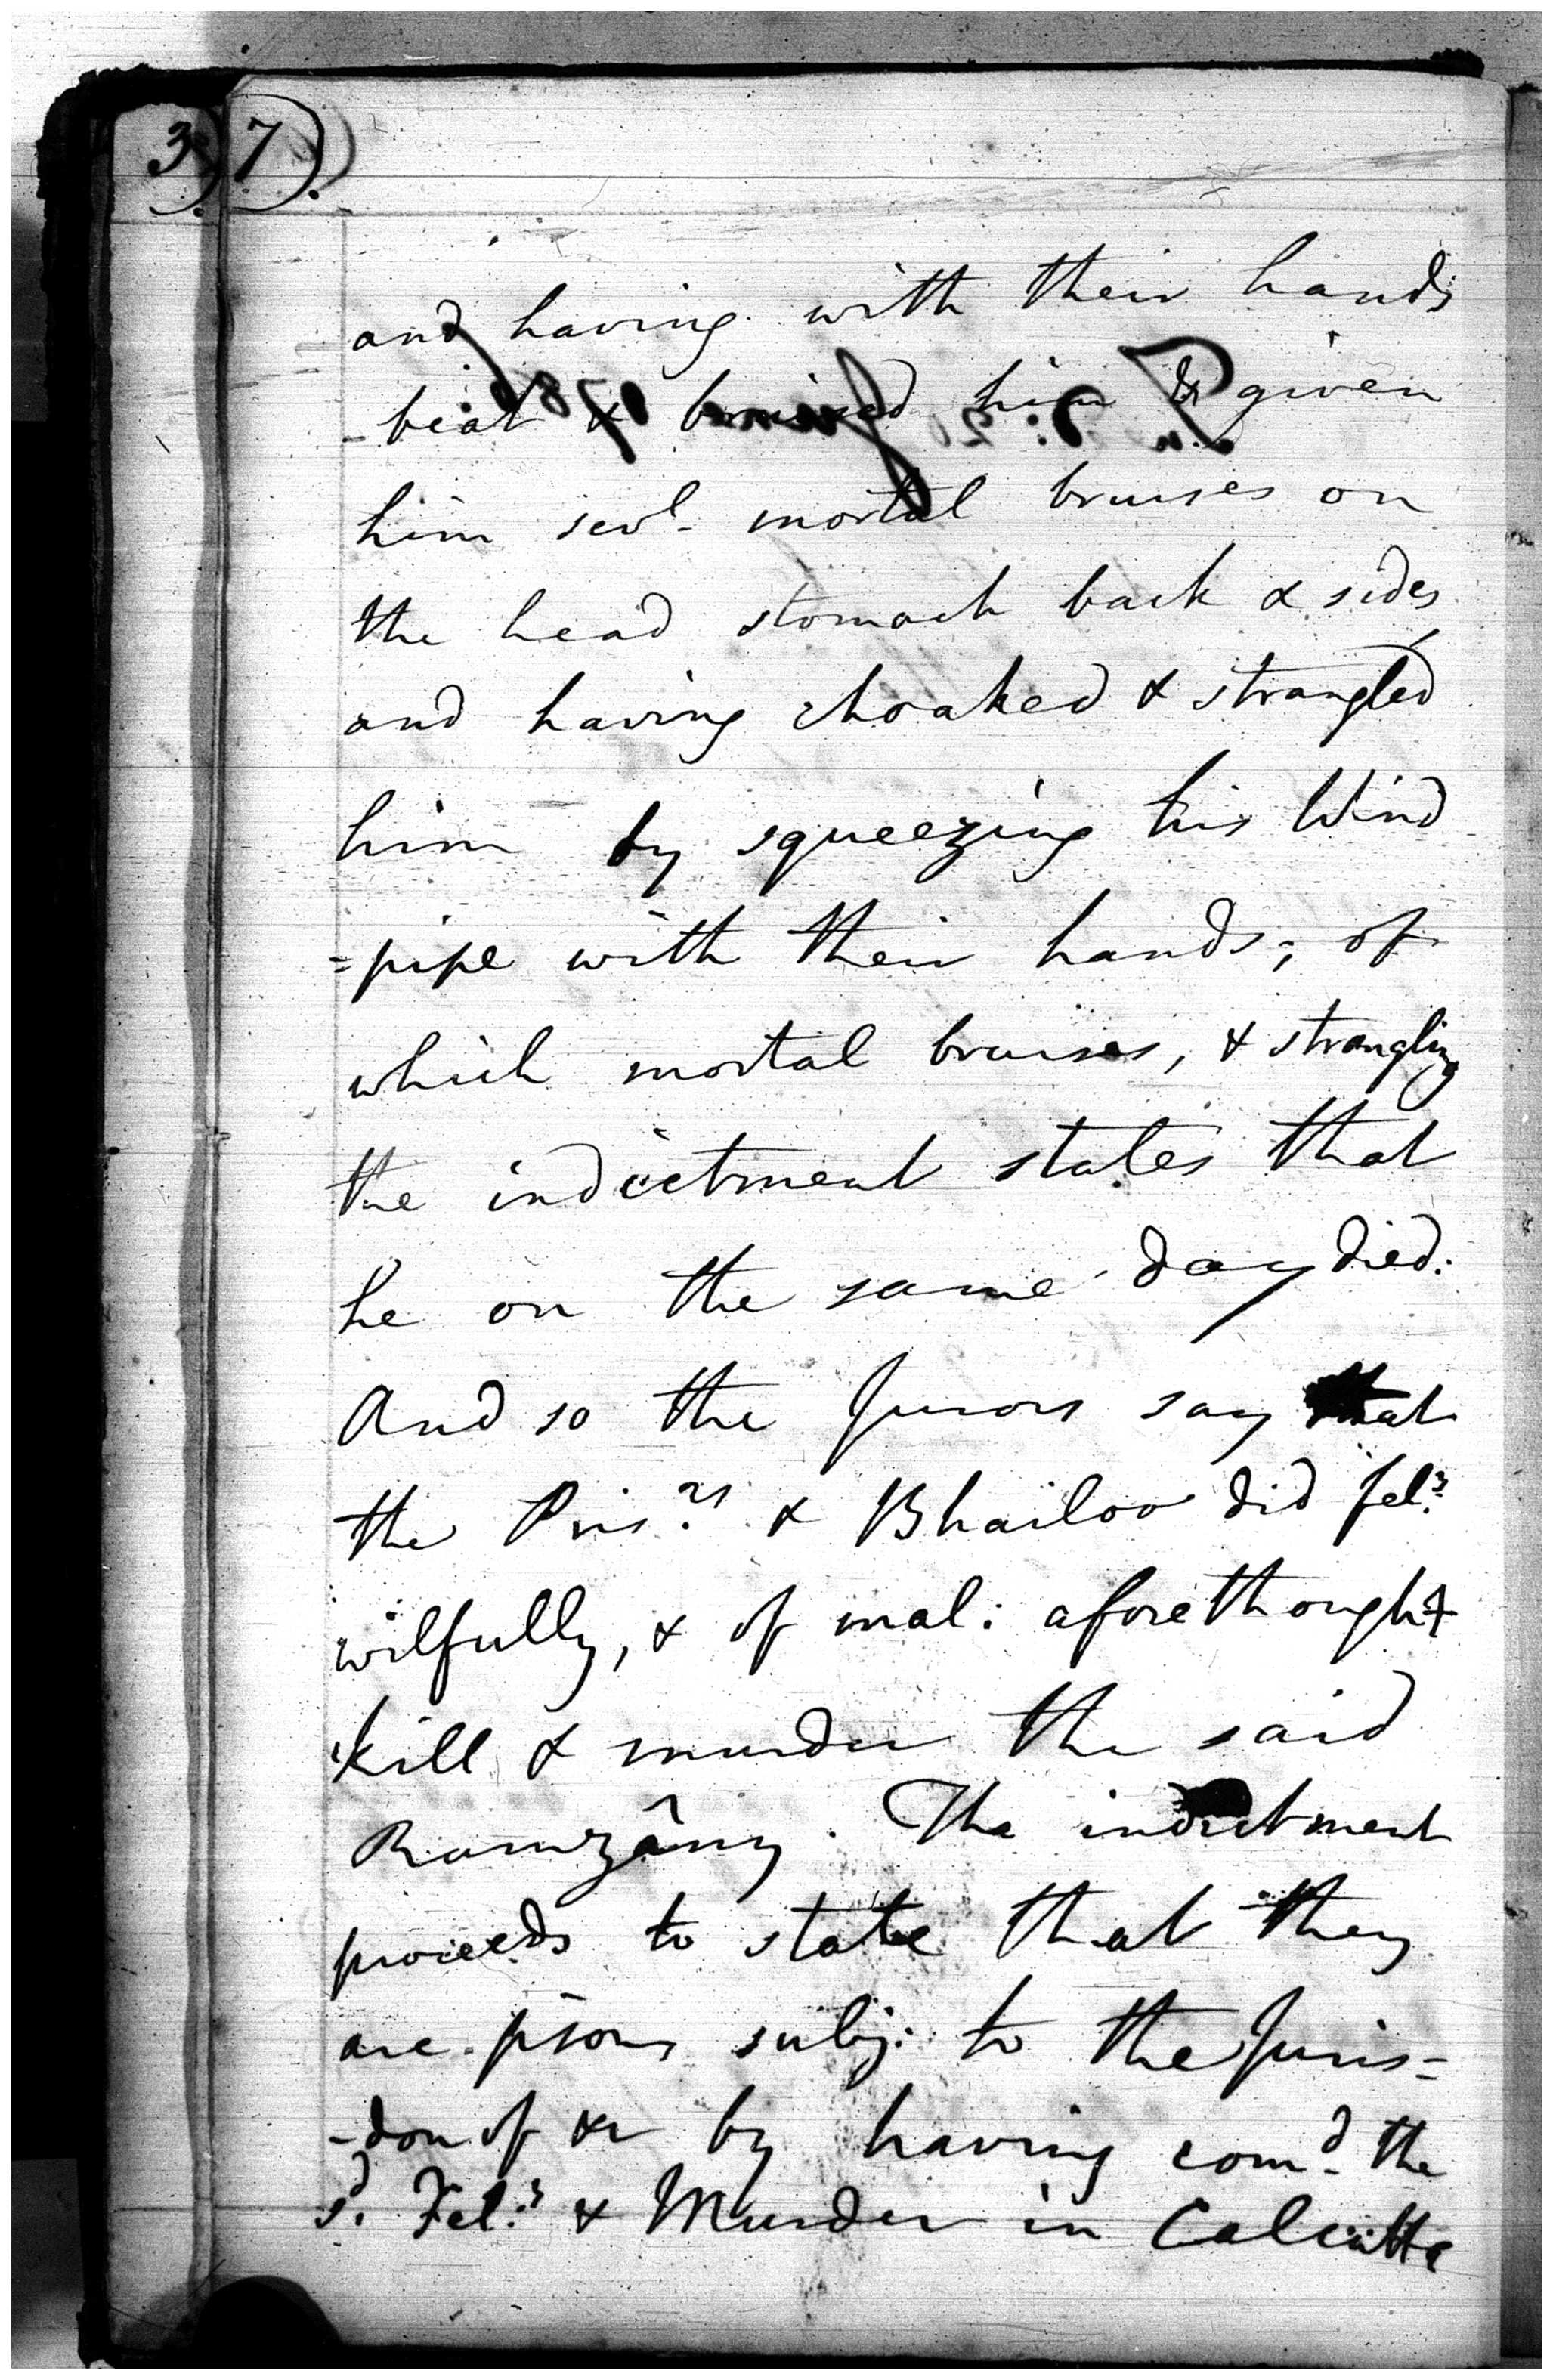 3.) 7).
and having with their hands
beat & bruised him & given
him sevl. mortal bruises on
the head stomach back & sides,
and having choaked & strangled
him by squeezing his Wind
=pipe with their hands; of
which mortal bruises, & strangling
the indictment states that
he on the same day died.
And so the Jurors say that
the Pris.rs & Bhailoo did fel.y
wilfully, & of mal: aforethought
kill & murder the said
Ramzâny. The indictment
proceeds to state that they
are psons subj: to the Juris=
-don of &c by having com.d the
s.d Fel.y & Murder in Calcutta